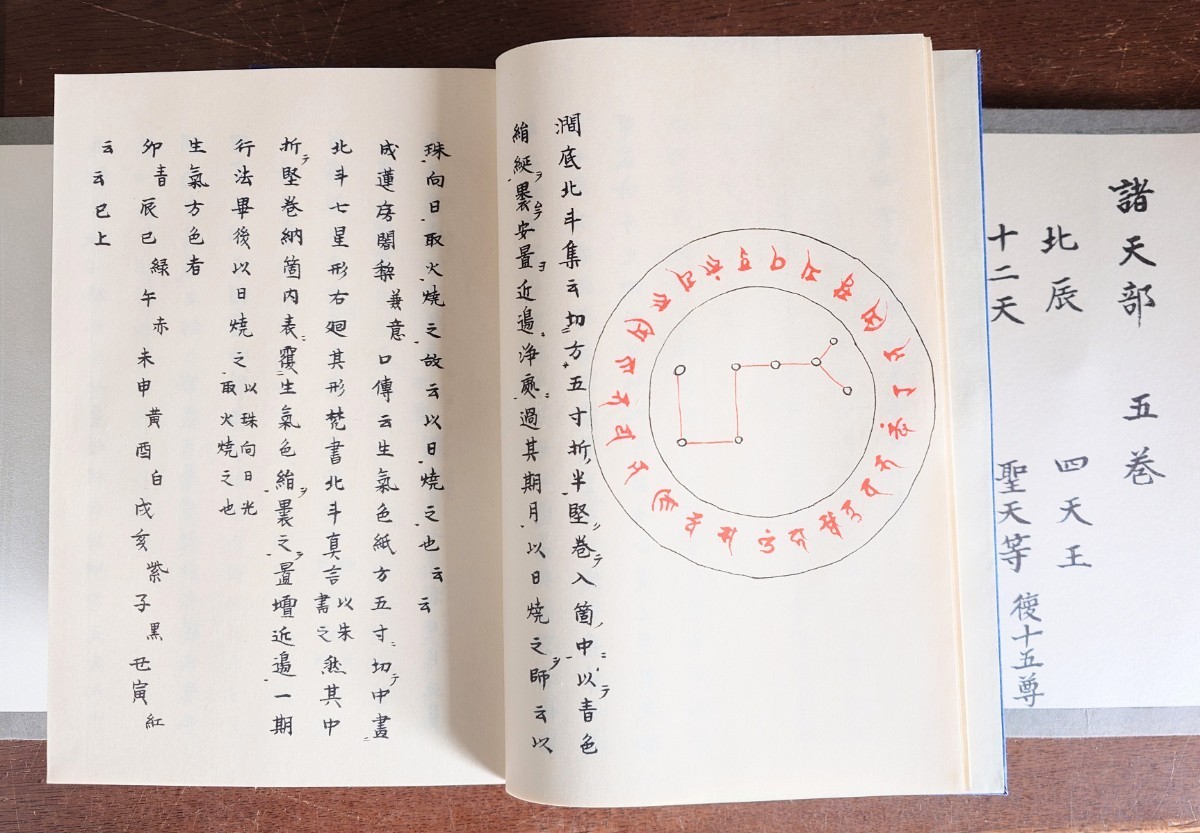 諸天部 五巻
北辰 四天王
十二天 聖天等 復十五尊
澗底北斗集云切方五寸折半堅巻テ入箇中ニ以テ青色
絹綖ヲ褁テ安置ヨ近邉浄處過其期月以日焼之ヲ師云以
珠向日取火焼之故云以日焼之也云云
成蓮房闍黎兼意口傳云生氣色紙方五寸ニ切テ中畫ニ
北斗七星形右廻其形梵書北斗真言以朱書之然其中
折テ堅巻納箇内表ニ覆生氣色絹ヲ褁之ヲ置壇近邉一期
行法畢後以日焼之以珠向日光取火焼之也
生氣方色者
卯青辰巳緑午赤未申黄酉白戌亥紫子黒丑寅紅
云云已上